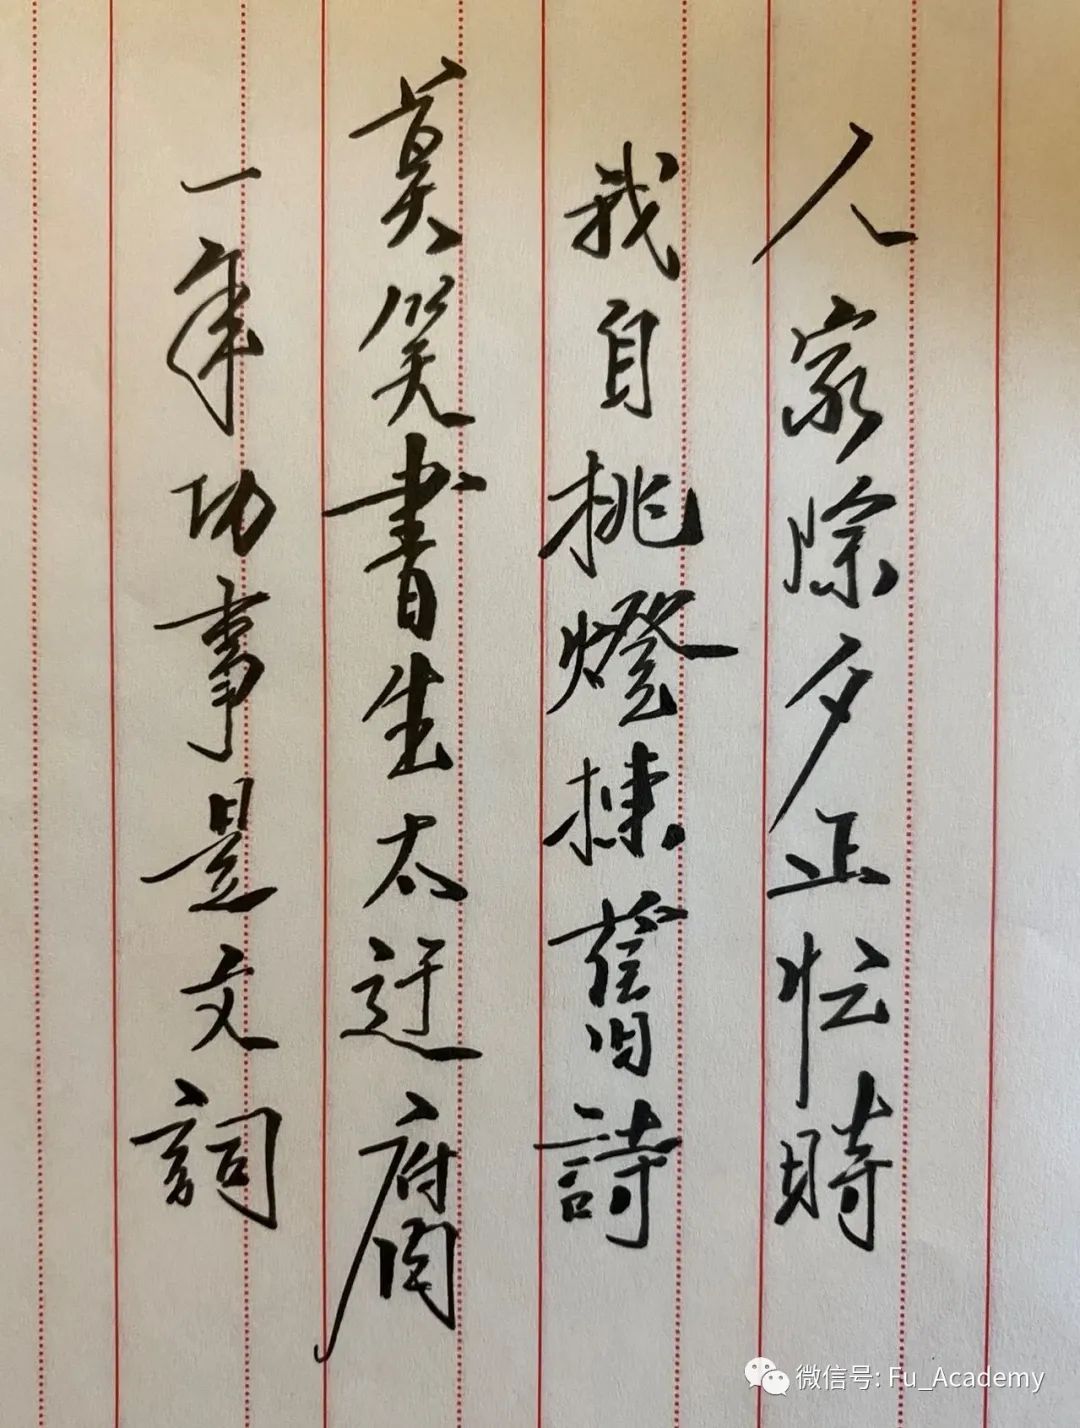 人家除夕正忙時
我自挑燈揀舊詩
莫笑書生太迂腐
一年功事是文詞
微信号: Fu_Academy